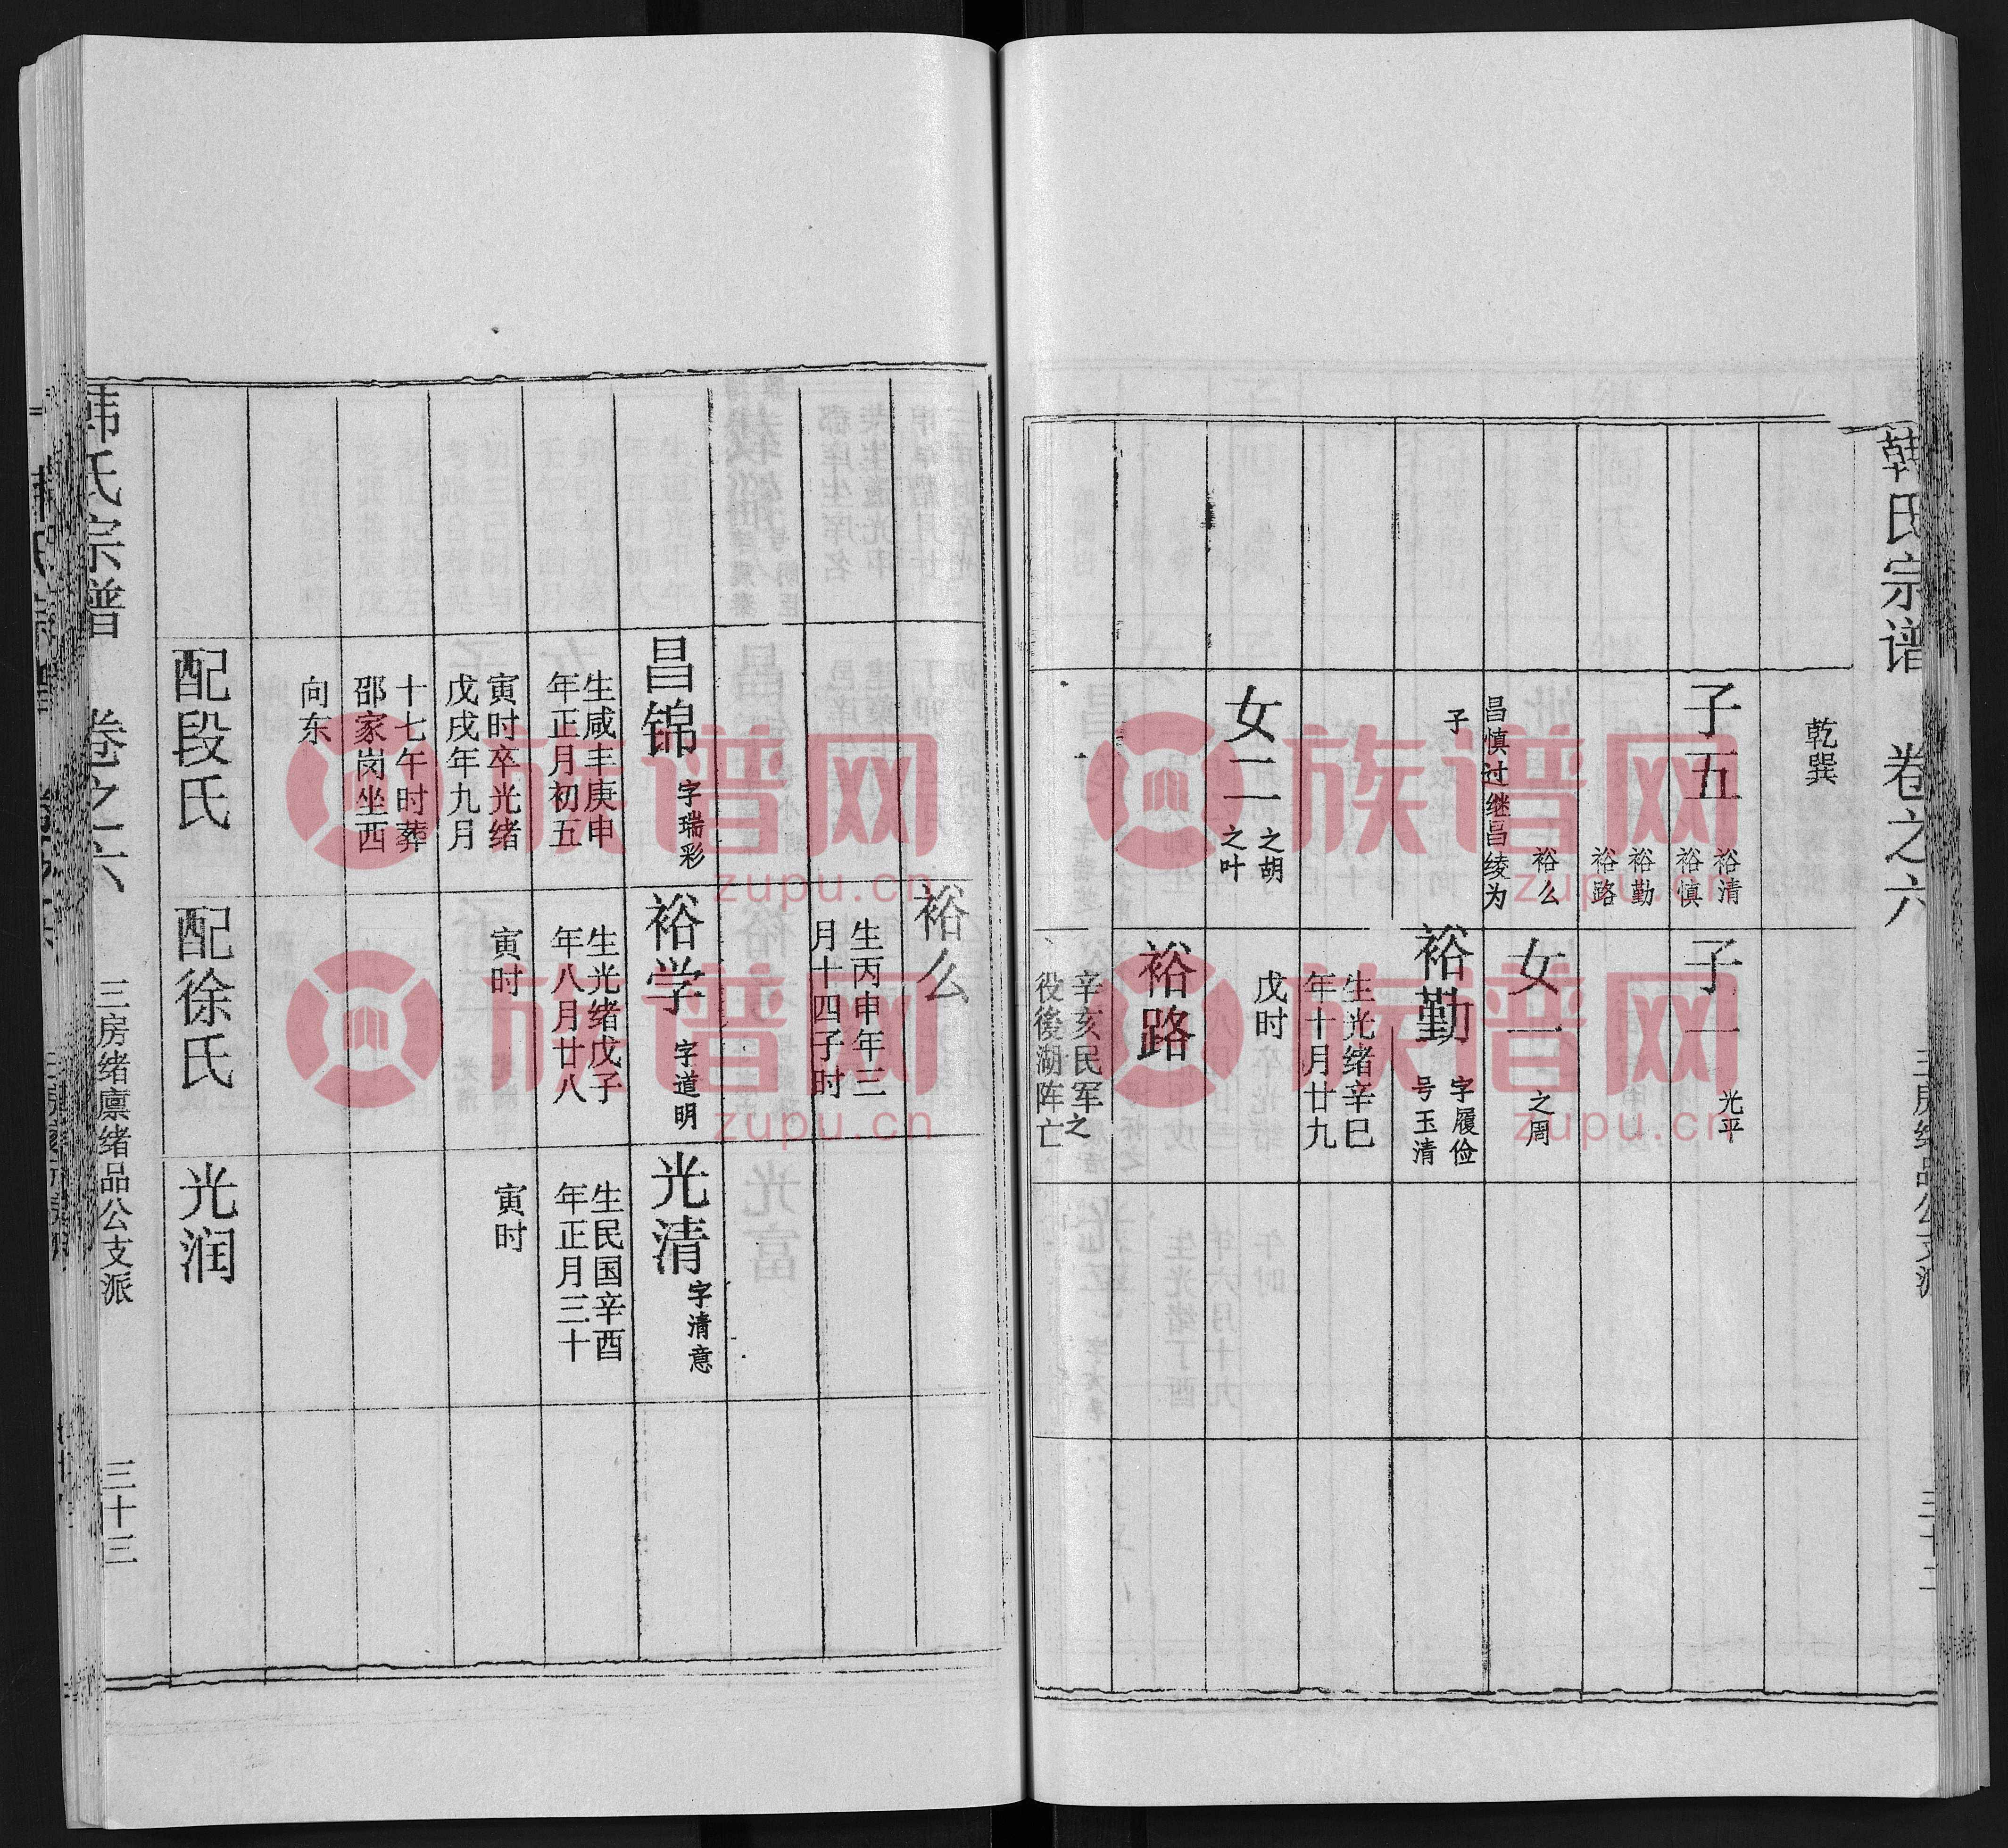 韩氏宗谱 卷之六
乾巽
子五
裕清
裕慎
裕勤
裕路
裕么
昌慎过继昌绫为
子
女二
之胡
之叶
子一
光平
女一
之周
裕勤
字履俭
号玉清
生光绪辛巳
年十月廿九
戊时
裕路
辛亥民军之
役後湖阵亡
裕么
生丙申年三
月十四子时
昌锦
字瑞彩
生咸丰庚申
年正月初五
寅时卒光绪
戊戌年九月
十七午时葬
邵家岗坐西
向东
配段氏
裕学
字道明
生光绪戊子
年八月廿八
寅时
配徐氏
光清
字清意
生民国辛酉
年正月三十
寅时
光润
韩氏宗谱 卷之六
三房绪廪绪品公支派
三十三
族谱网
zupu.cn
族谱网
zupu.cn
族谱网
zupu.cn
族谱网
zupu.cn